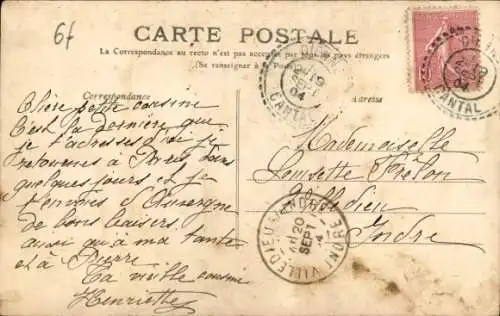 6f
CARTE POSTALE
La Correspondance au recto n'est pas acceptée par tous les pays étrangers
(Se renseigner à la Poste)
Correspondance
Adresse
Chère petite cousine
C'est la dernière que
je t'adresse d'ici je
retourne à Paris dans
quelques jours et je
t'envoies d'Auvergne
de bons baisers
ainsi qu'à ma tante
et à Pierre
Ta vieille cousine
Henriette
Mademoiselle
Louisette Frélon
Villedieu
Indre
CANTAL
04
CANTAL
VILLEDIEU INDRE
20
SEPT